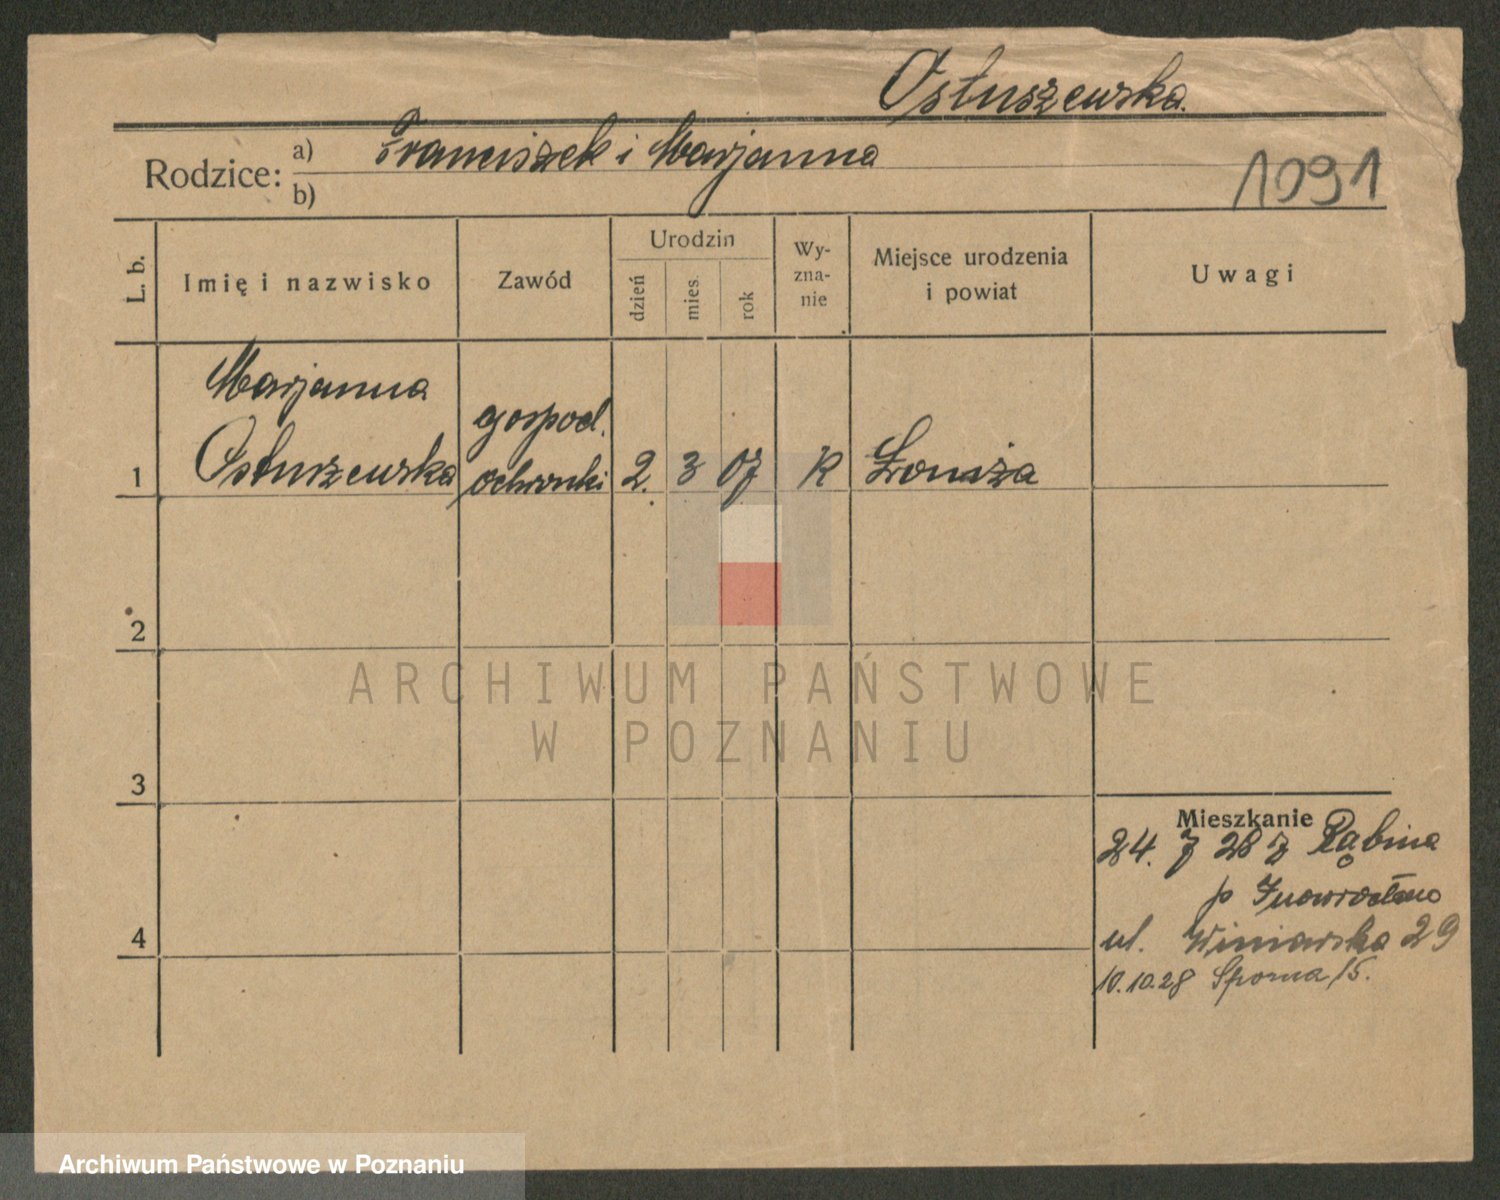 Osłuszewska.
Rodzice:
a) Franciszek i Marjanna
b)
1091
L. b.
Imię i nazwisko
Zawód
Urodzin
dzień
mies.
rok
Wy-
zna-
nie
Miejsce urodzenia
i powiat
Uwagi
Marjanna
gospod.
1 Osłuszewska ochronki 2. 3 07 R Łomża
2
3
4
Mieszkanie
24. 7 28 z Rąbina
p Inowrocław
ul. Winiarska 29
10.10.28 Sporna 15.
ARCHIWUM PAŃSTWOWE
W POZNANIU
Archiwum Państwowe w Poznaniu